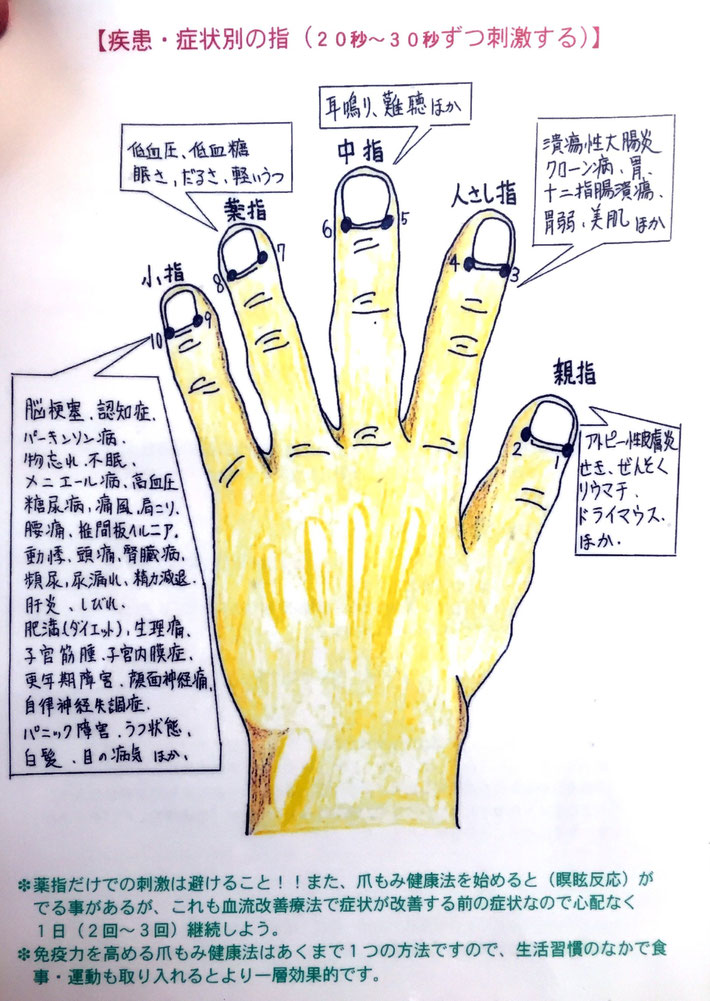 【疾患・症状別の指（２０秒〜３０秒ずつ刺激する）】
耳鳴り、難聴ほか
低血圧、低血糖
眠さ、だるさ、軽いうつ
潰瘍性大腸炎
クローン病、胃、
十二指腸潰瘍、
胃弱、美肌 ほか
中指
薬指
人さし指
小指
親指
6 5
8 7
4 3
10 9
2 1
アトピー性皮膚炎
せき、ぜんそく
リウマチ、
ドライマウス、
ほか.
脳梗塞、認知症、
パーキンソン病、
物忘れ、不眠、
メニエール病、高血圧
糖尿病、痛風、肩こり、
腰痛、椎間板ヘルニア、
動悸、頭痛、腎臓病、
頻尿、尿漏れ、精力減退、
肝炎、しびれ、
肥満(ダイエット)、生理痛、
子宮筋腫、子宮内膜症、
更年期障害、顔面神経痛、
自律神経失調症、
パニック障害、うつ状態、
白髪、目の病気 ほか、
✽薬指だけでの刺激は避けること！！また、爪もみ健康法を始めると（瞑眩反応）が
でる事があるが、これも血流改善療法で症状が改善する前の症状なので心配なく
１日（２回〜３回）継続しよう。
✽免疫力を高める爪もみ健康法はあくまで１つの方法ですので、生活習慣のなかで食
事・運動も取り入れるとより一層効果的です。